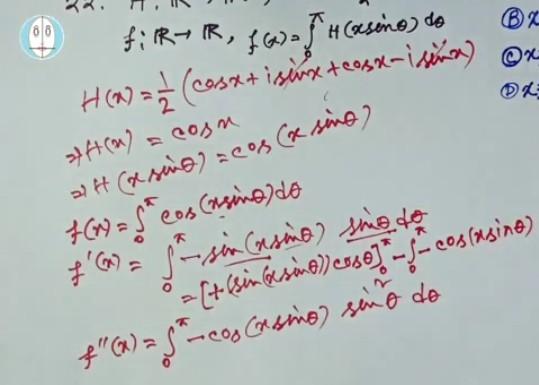 22. H: R
f: R → R, f(x) = ∫₀^π H(x sinθ) dθ
H(x) = 1/2 (cosx + i sinx + cosx - i sinx)
⇒ H(x) = cosx
⇒ H(x sinθ) = cos(x sinθ)
f(x) = ∫₀^π cos(x sinθ) dθ
f'(x) = ∫₀^π - sin(x sinθ) sinθ dθ
= [+(sin(x sinθ)) cosθ]₀^π - ∫₀^π - cos(x sinθ)
f''(x) = ∫₀^π - cos(x sinθ) sin²θ dθ
Ⓑ x
Ⓒ x
Ⓓ x